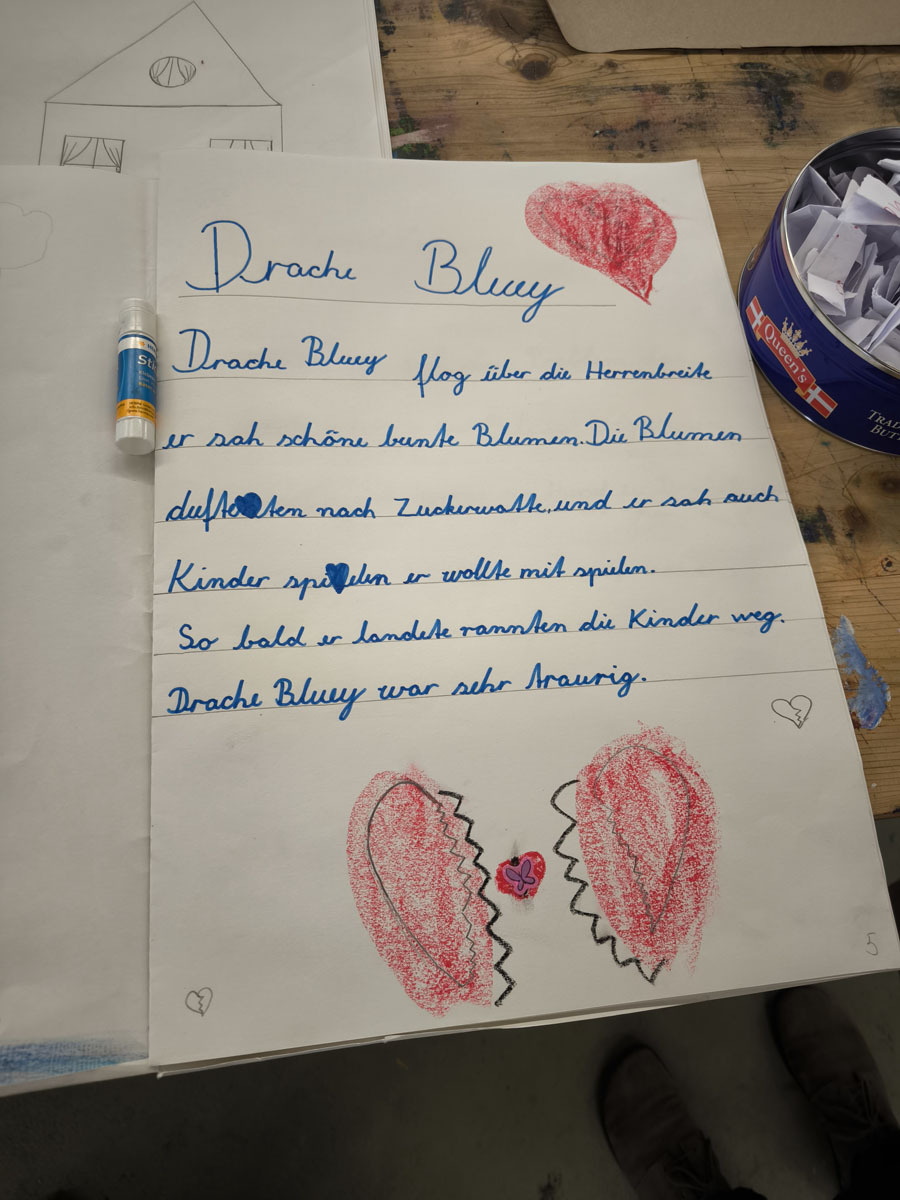 Drache Bluey
Drache Bluey flog über die Herrenbreite
er sah schöne bunte Blumen. Die Blumen
dufteten nach Zuckerwatte, und er sah auch
Kinder spielen er wollte mit spielen.
So bald er landete rannten die Kinder weg.
Drache Bluey war sehr traurig.
5
Queen's